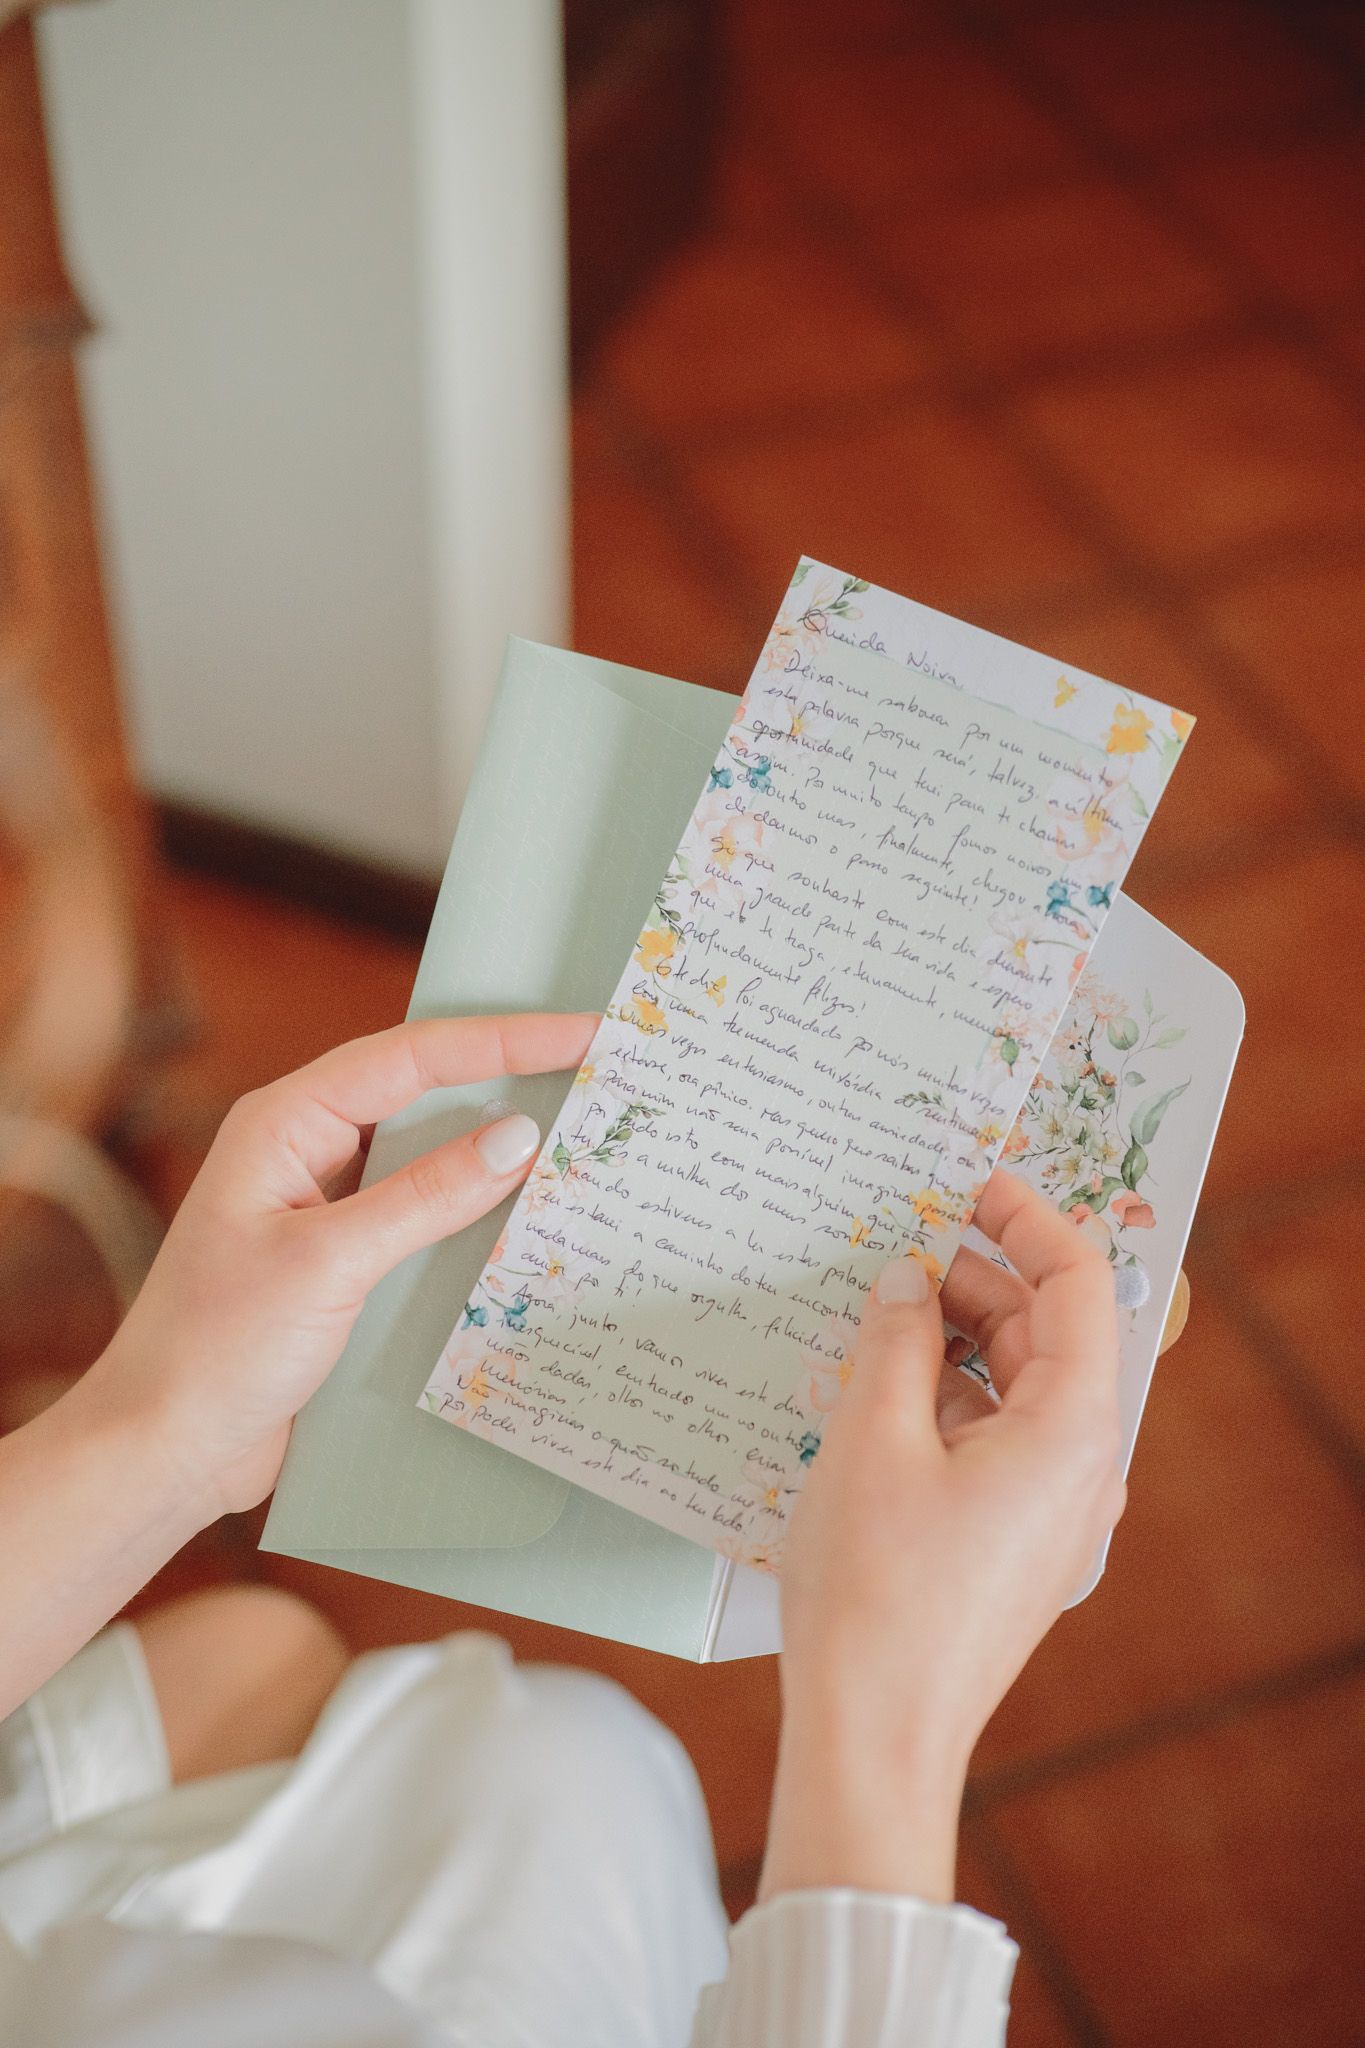 Querida Noiva,
Deixa-me saborear por um momento
esta palavra porque será, talvez, a última
oportunidade que terei para te chamar
assim. Por muito tempo fomos noivos um
do outro mas, finalmente, chegou a hora
de darmos o passo seguinte!
Sei que sonhaste com este dia durante
uma grande parte da tua vida e espero
que ele te traga, eternamente, memórias
profundamente felizes!
Este dia foi aguardado por nós muitas vezes
com uma tremenda mixórdia de sentimentos
umas vezes entusiasmo, outras ansiedade, ora
estase, ora pânico. Mas quero que saibas que,
para mim não seria possível imaginar passar
por tudo isto com mais alguém que não
tu. És a mulher dos meus sonhos!
Quando estiveres a ler estas palavras
eu estarei a caminho do teu encontro
nada mais do que orgulho, felicidade
amor por ti!
Agora, juntos, vamos viver este dia
inesquecível, centrados um no outro
mãos dadas, olhos nos olhos, criar
memórias,
Não imaginas o quão sortudo me sinto
por poder viver este dia ao teu lado!